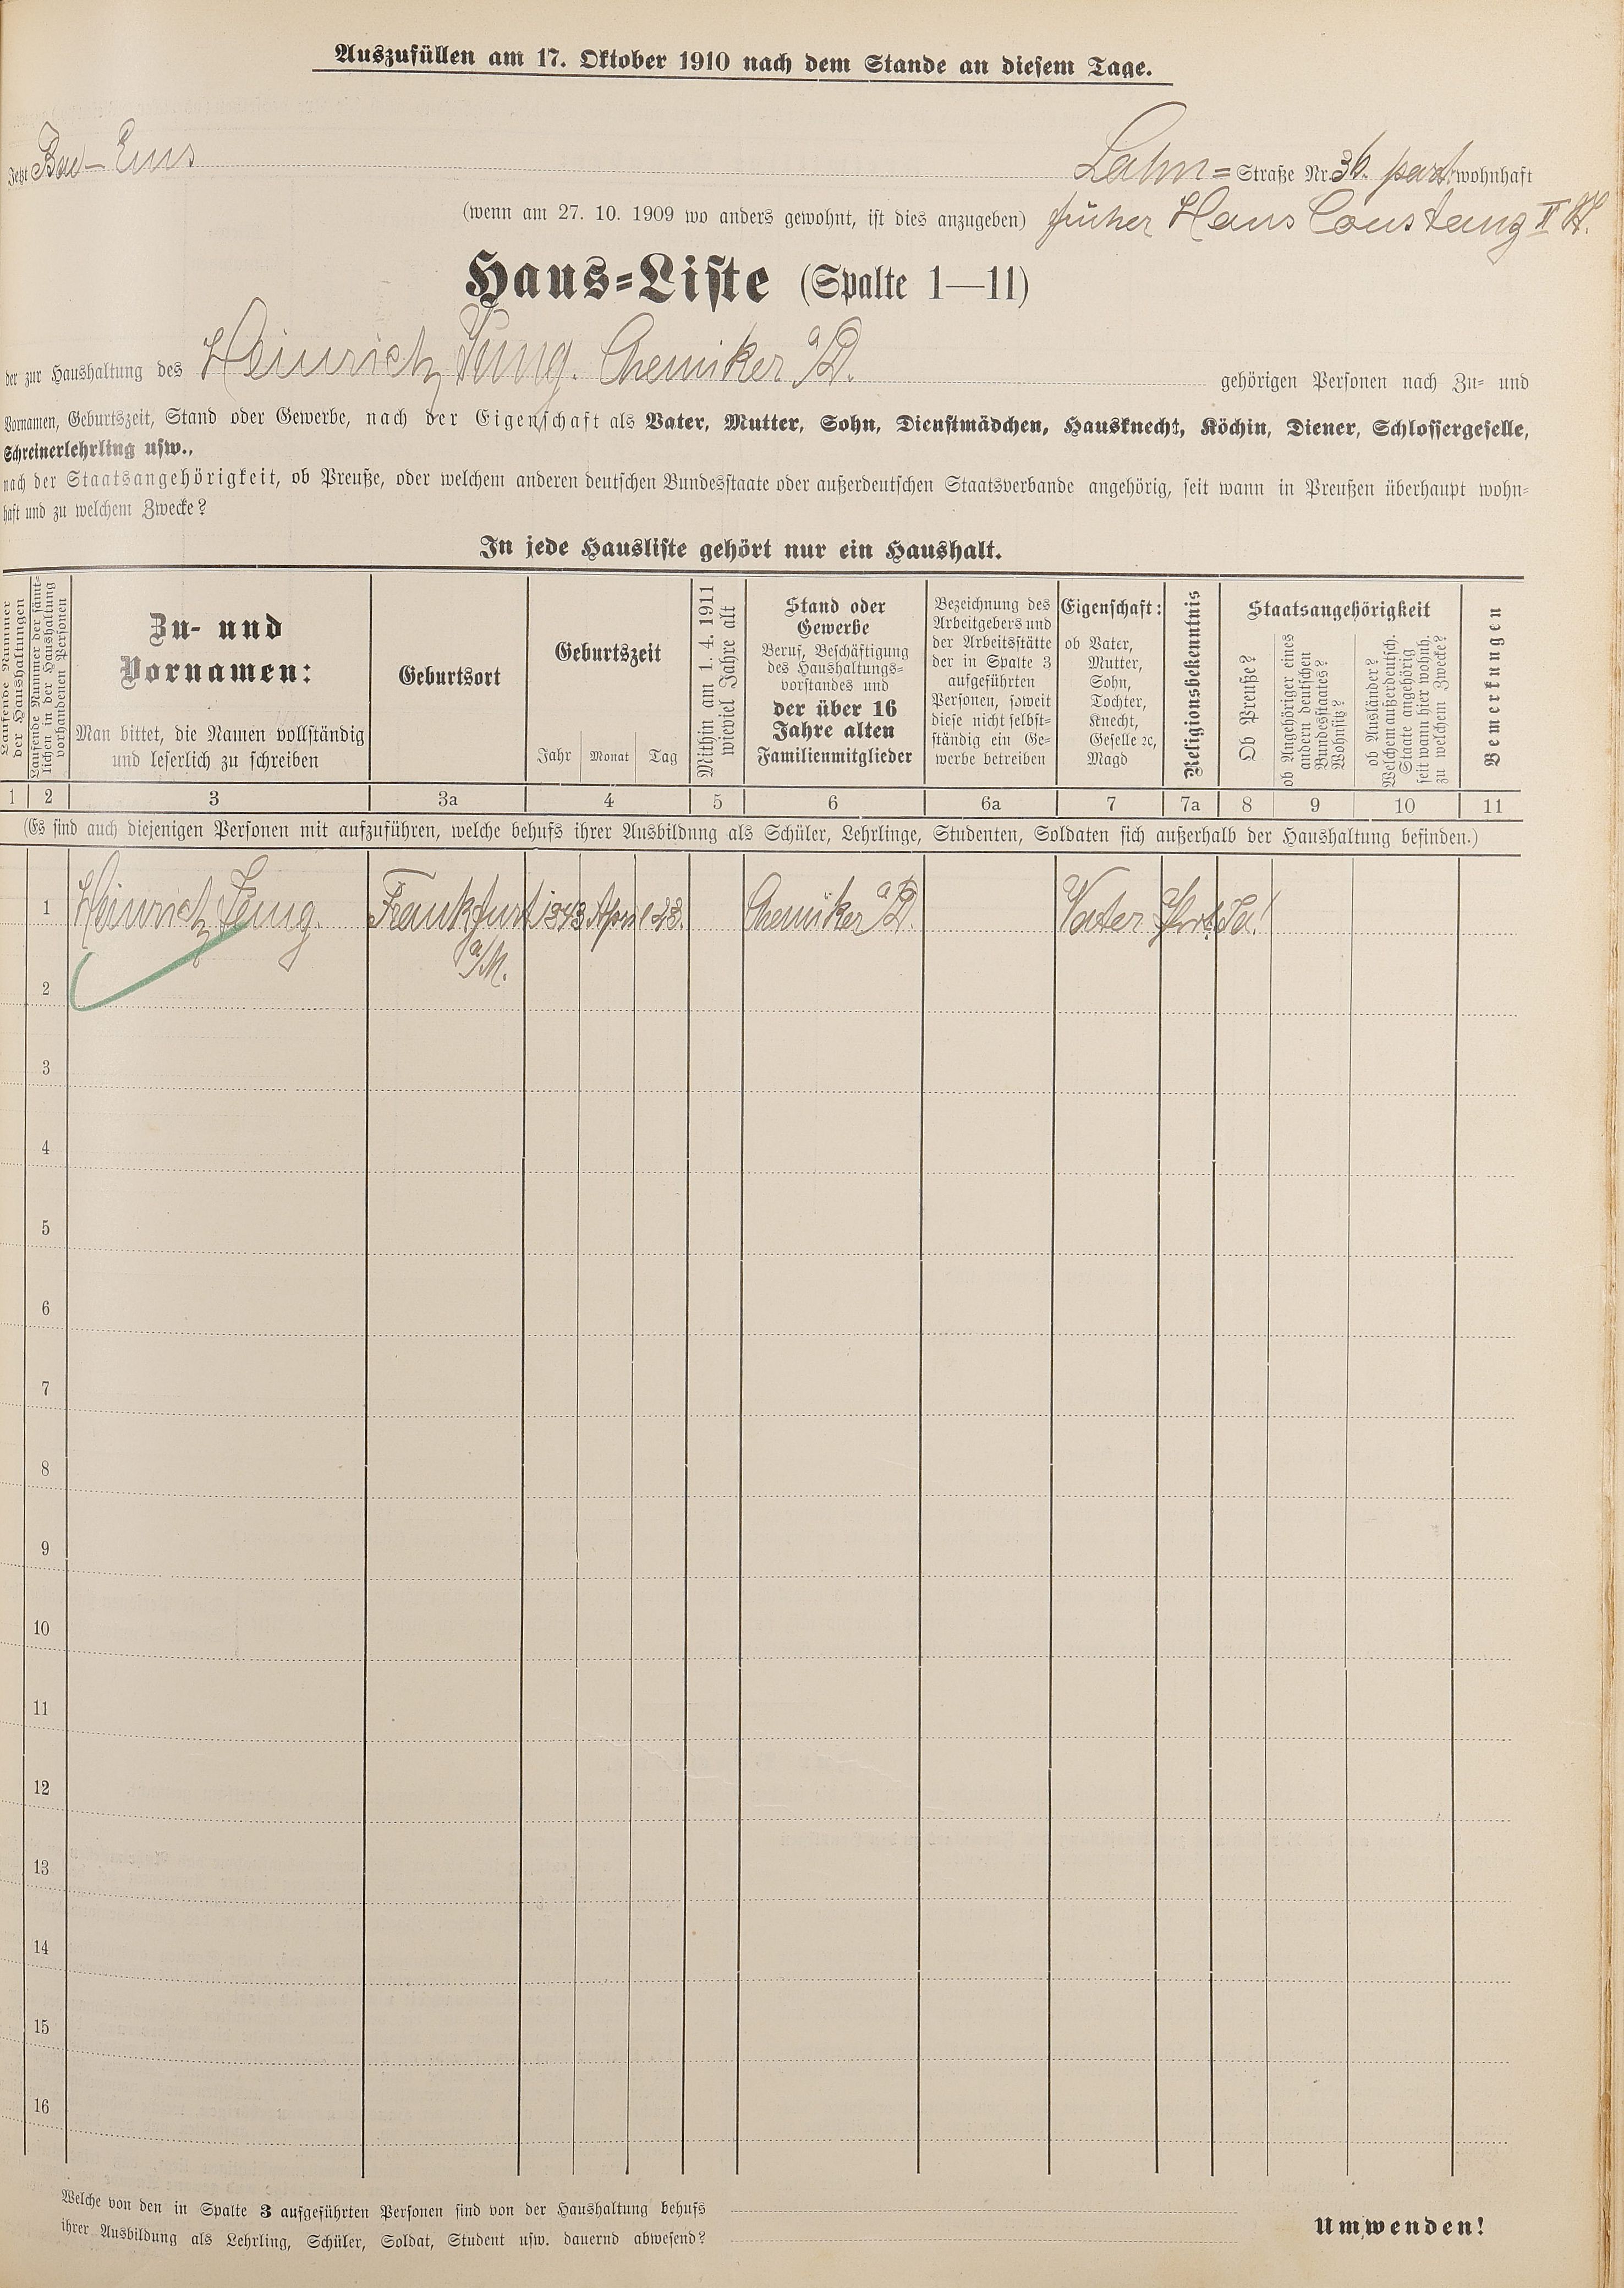 Auszufüllen am 17. Oktober 1910 nach dem Stande an diesem Tage.
Jetzt Bad-Ems Lahn=Straße Nr. 36. part. wohnhaft
(wenn am 27. 10. 1909 wo anders gewohnt, ist dies anzugeben) früher Haus Constanz II St.
Haus=Liste (Spalte 1—11)
der zur Haushaltung des Heinrich Jung. Chemiker a/D. gehörigen Personen nach Zu- und
Vornamen, Geburtszeit, Stand oder Gewerbe, nach der Eigenschaft als Vater, Mutter, Sohn, Dienstmädchen, Hausknecht, Köchin, Diener, Schlossergeselle,
Schreinerlehrling usw.,
nach der Staatsangehörigkeit, ob Preuße, oder welchem anderen deutschen Bundesstaate oder außerdeutschen Staatsverbande angehörig, seit wann in Preußen überhaupt wohn=
haft und zu welchem Zwecke?
In jede Hausliste gehört nur ein Haushalt.
Laufende Nummer
der Haushaltungen
Laufende Nummer der sämt=
lichen in der Haushaltung
vorhandenen Personen
Zu- und
Vornamen:
Man bittet, die Namen vollständig
und leserlich zu schreiben
Geburtsort
Geburtszeit
Jahr Monat Tag
Mithin am 1. 4. 1911
wieviel Jahre alt
Stand oder
Gewerbe
Beruf, Beschäftigung
des Haushaltungs=
vorstandes und
der über 16
Jahre alten
Familienmitglieder
Bezeichnung des
Arbeitgebers und
der Arbeitsstätte
der in Spalte 3
aufgeführten
Personen, soweit
diese nicht selbst=
ständig ein Ge=
werbe betreiben
Eigenschaft:
ob Vater,
Mutter,
Sohn,
Tochter,
Knecht,
Geselle ꝛc,
Magd
Religionsbekenntnis
Staatsangehörigkeit
Ob Preuße?
ob Angehöriger eines
andern deutschen
Bundesstaates?
Wohnsitz?
ob Ausländer?
Welchem außerdeutsch.
Staate angehörig
seit wann hier wohnh.
zu welchem Zwecke?
Bemerkungen
1 2 3 3a 4 5 6 6a 7 7a 8 9 10 11
(Es sind auch diejenigen Personen mit aufzuführen, welche behufs ihrer Ausbildung als Schüler, Lehrlinge, Studenten, Soldaten sich außerhalb der Haushaltung befinden.)
1 Heinrich Jung. Frankfurt 1843 April 23. Chemiker a/D. Vater Ja!
a/M.
2
3
4
5
6
7
8
9
10
11
12
13
14
15
16
Welche von den in Spalte 3 aufgeführten Personen sind von der Haushaltung behufs
ihrer Ausbildung als Lehrling, Schüler, Soldat, Student usw. dauernd abwesend?
Umwenden!